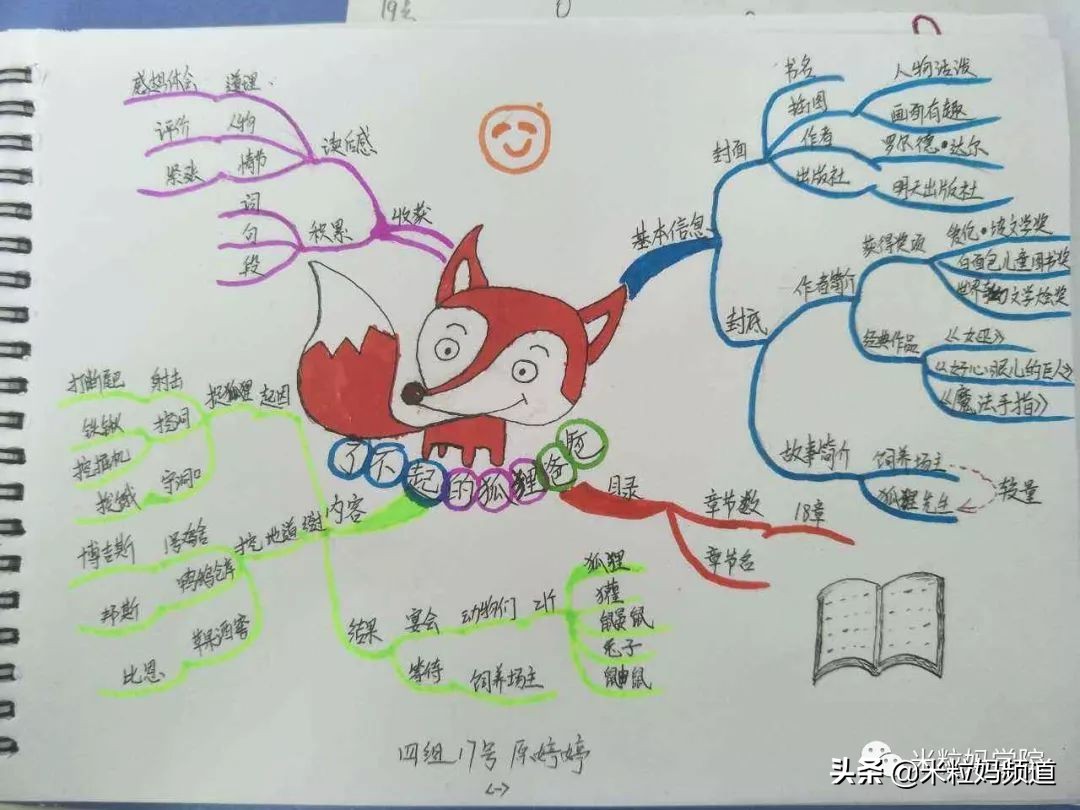 19去
感想体会 道理
评价 人物
紧张 情节
读后感
词
句
段
积累
收获
基本信息
封面
书名
插图
人物活泼
画面有趣
作者
罗尔德·达尔
出版社
明天出版社
封底
作者简介
获得奖项
白面包儿童图书奖
经典作品
《女巫》
《好心眼儿的巨人》
《魔法手指》
故事简介
饲养场主
狐狸先生
较量
了不起的狐狸爸爸
目录
章节数
18章
章节名
内容
起因
捉狐狸
射击
打断尾巴
挖洞
铁锹
挖掘机
守洞口
挖地道
1号鸡舍
博吉斯
鸭鹅仓库
邦斯
苹果酒窖
比恩
结果
宴会
动物们
狐狸
獾
鼹鼠
兔子
鼬鼠
等待
饲养场主
四组17号 原婷婷
米粒妈学院
头条@米粒妈频道